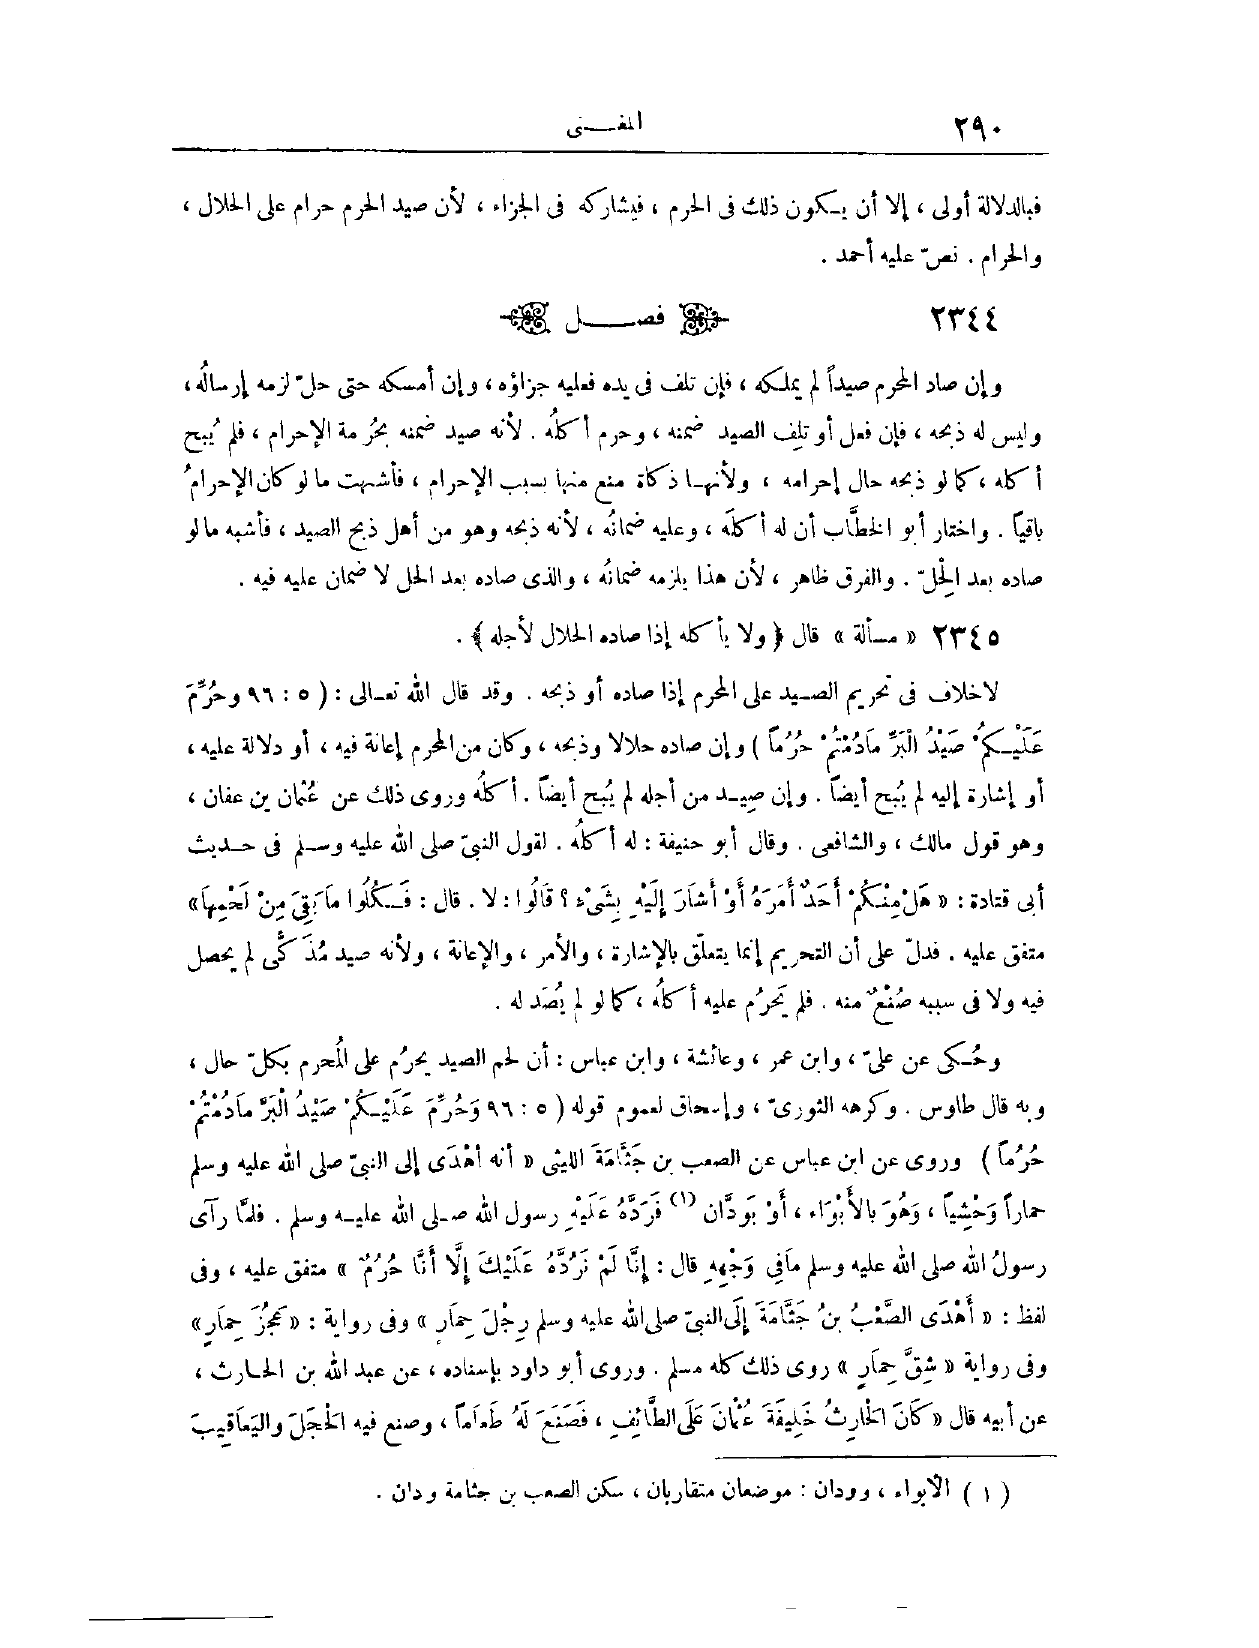 ٢٩٠ المغــنى
فبالدلالة أولى ، إلا أن يـكون ذلك فى الحرم ، فيشاركه فى الجزاء ، لأن صيد الحرم حرام على الحلال ،
والحرام . نصّ عليه أحمد .
٢٣٤٤ فصــــل
وإن صاد المحرم صيداً لم يملكه ، فإن تلف فى يده فعليه جزاؤه ، وإن أمسكه حتى حلّ لزمه إرسالُه ،
وليس له ذبحه ، فإن فعل أو تلِف الصيد ضمنه ، وحرم أكلُه . لأنه صيد ضمنه بحُرمة الإحرام ، فلم يُبح
أكله ، كما لو ذبحه حال إحرامه ، ولأنهـا ذكاة منع منها بسبب الإحرام ، فأشبهت ما لو كان الإحرامُ
باقياً . واختار أبو الخطَّاب أن له أكلَه ، وعليه ضمانُه ، لأنه ذبحه وهو من أهل ذبح الصيد ، فأشبه ما لو
صاده بعد الحِلّ . والفرق ظاهر ، لأن هذا يلزمه ضمانُه ، والذى صاده بعد الحل لا ضمان عليه فيه .
٢٣٤٥ « مسـألة » قال ﴿ ولا يأكله إذا صاده الحلال لأجله ﴾ .
لا خلاف فى تحريم الصـيد على المحرم إذا صاده أو ذبحه . وقد قال الله تعـالى : ( ٥ : ٩٦ وحُرِّمَ
عَلَيْـكُمْ صَيْدُ البَرِّ مَادُمْتُمْ حُرُماً ) وإن صاده حلالا وذبحه ، وكان من المحرم إعانة فيه ، أو دلالة عليه ،
أو إشارة إليه لم يُبح أيضاً . وإن صِيـد من أجله لم يُبح أيضاً . أكلُه وروى ذلك عن عُثمان بن عفان ،
وهو قول مالك ، والشافعى . وقال أبو حنيفة : له أكلُه . لقول النبىّ صلى الله عليه وسـلم فى حـديث
أبى قتادة : « هَلْ مِنْـكُمْ أَحَدٌ أَمَرَهُ أَوْ أَشَارَ إِلَيْهِ بِشَىْءٍ ؟ قَالُوا : لا . قال : فَـكُلُوا مَا بَقِىَ مِنْ لَحْمِهَا »
متفق عليه . فدلّ على أن التحريم إنما يتعلّق بالإشارة ، والأمر ، والإعانة ، ولأنه صيد مُذَكًّى لم يحصل
فيه ولا فى سببه صُنْعٌ منه . فلم يَحرُم عليه أكلُه ، كما لو لم يُصَد له .
وحُـكى عن علىّ ، وابن عمر ، وعائشة ، وابن عباس : أن لحم الصيد يحرُم على المُحرم بكلّ حال ،
وبه قال طاوس . وكرهه الثورىّ ، وإسحاق لعموم قوله ( ٥ : ٩٦ وَحُرِّمَ عَلَيْـكُمْ صَيْدُ الْبَرِّ مَادُمْتُمْ
حُرُماً ) وروى عن ابن عباس عن الصعب بن جَثَّامَةَ الليثى « أنه أهْدَى إلى النبىّ صلى الله عليه وسلم
حماراً وَحْشِياً ، وَهُوَ بالأَبْوَاء ، أَوْ بَودَّان (١) فَرَدَّهُ عَلَيْهِ رسول الله صـلى الله عليـه وسلم . فلمَّا رآى
رسولُ الله صلى الله عليه وسلم مَافِى وَجْهِهِ قال : إِنَّا لَمْ نَرُدَّهُ عَلَيْكَ إِلَّا أَنَّا حُرُمٌ » متفق عليه ، وفى
لفظ : « أَهْدَى الصَّعْبُ بنُ جَثَّامَةَ إِلَى النبىّ صلى الله عليه وسلم رِجْلَ حِمَارٍ » وفى رواية : « عَجُزَ حِمَارٍ »
وفى رواية « شِقَّ حِمَارٍ » روى ذلك كله مسلم . وروى أبو داود بإسناده ، عن عبد الله بن الحـارث ،
عن أبيه قال « كَانَ الحَارِثُ خَلِيفَةَ عُثْمَانَ عَلَى الطَّائِفِ ، فَصَنَعَ لَهُ طَعَاماً ، وصنع فيه الحَجَلَ واليَعَاقِيبَ
( ١ ) الأبواء ، وودان : موضعان متقاربان ، سكن الصعب بن جثامة ودان .